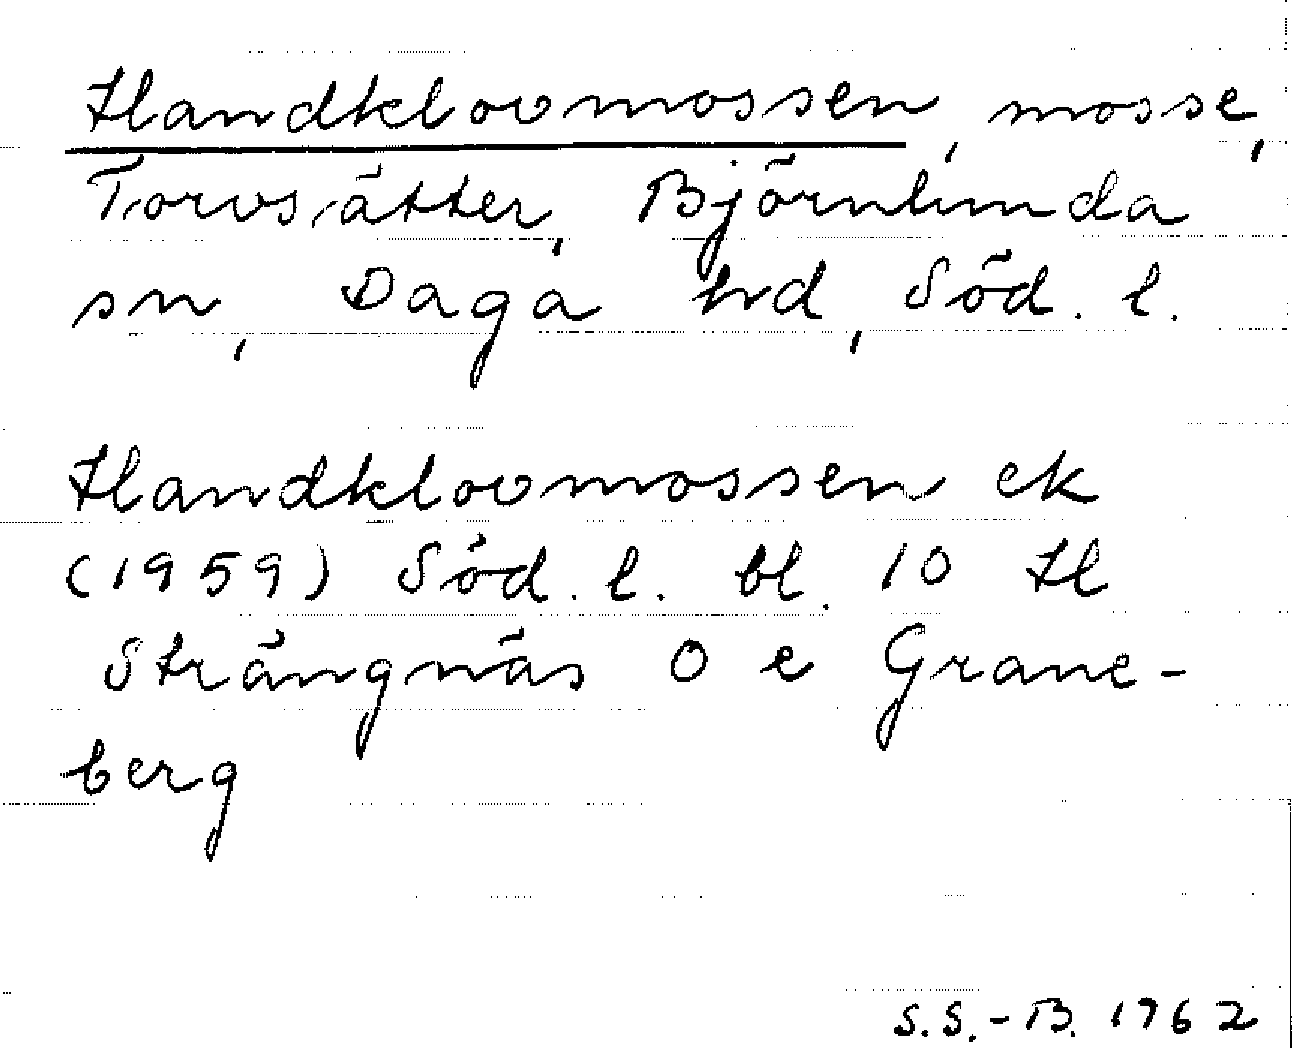 Handklovmossen, mosse,
Torvsätter, Björnlunda
sn, Daga hd, Söd. l.
Handklovmossen ek
(1959) Söd. l. bl. 10 H
Strängnäs O e Grane-
berg
S.S.-B. 1962